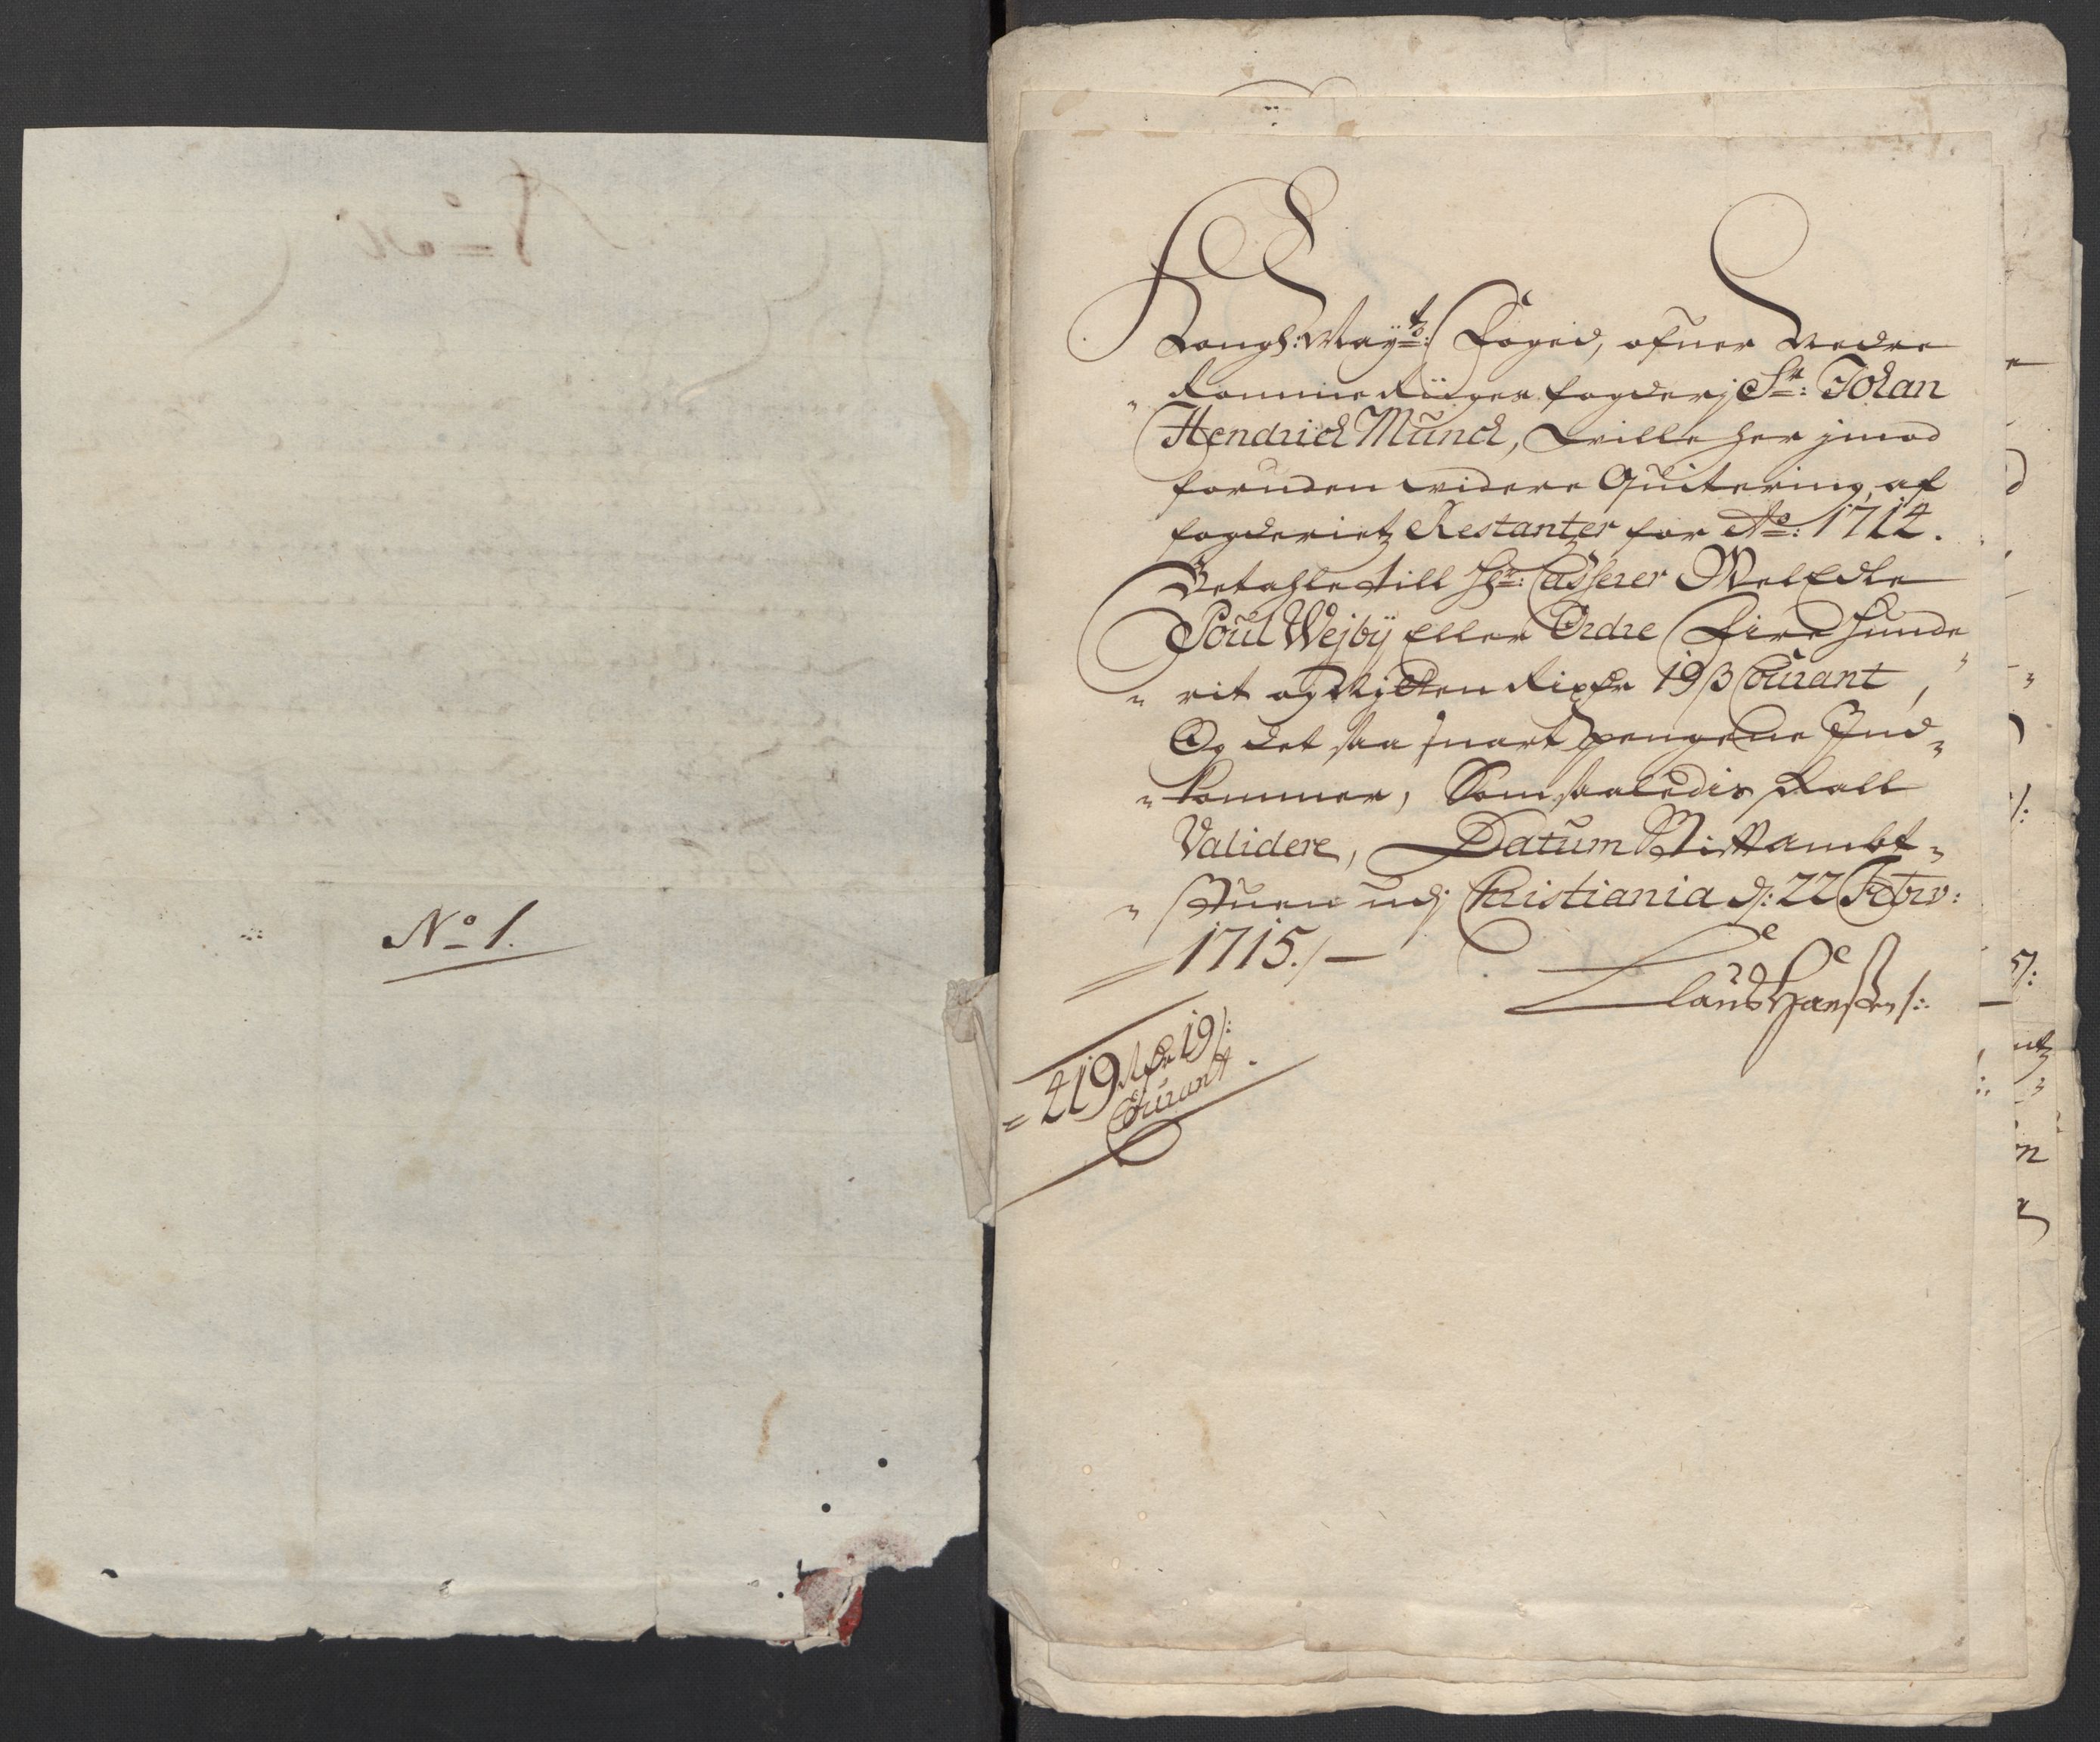 No 1.
Kongl: Mayts: Foged, ofuer Nedre
Rommerigges fogderj Sr: Johan
Hendrich Munch, Wille her jmod
foruden widere Quitering, af
fogderietz Restantzer for Ao: 1714.
Betahle till Hr: Casserer WelEdle
Poul Wejby Eller Ordre Fire Hunde
rit og Nitten Rixdr 19 β Courant,
Og det saa snart Pengene Ind
kommer, Som saaledis skall
Validere, Datum Stiftambt
stuen udj Christiania d: 22 Febrv:
1715./—
Claus Hanssen/:
419 Rdr 19/:
Courant.